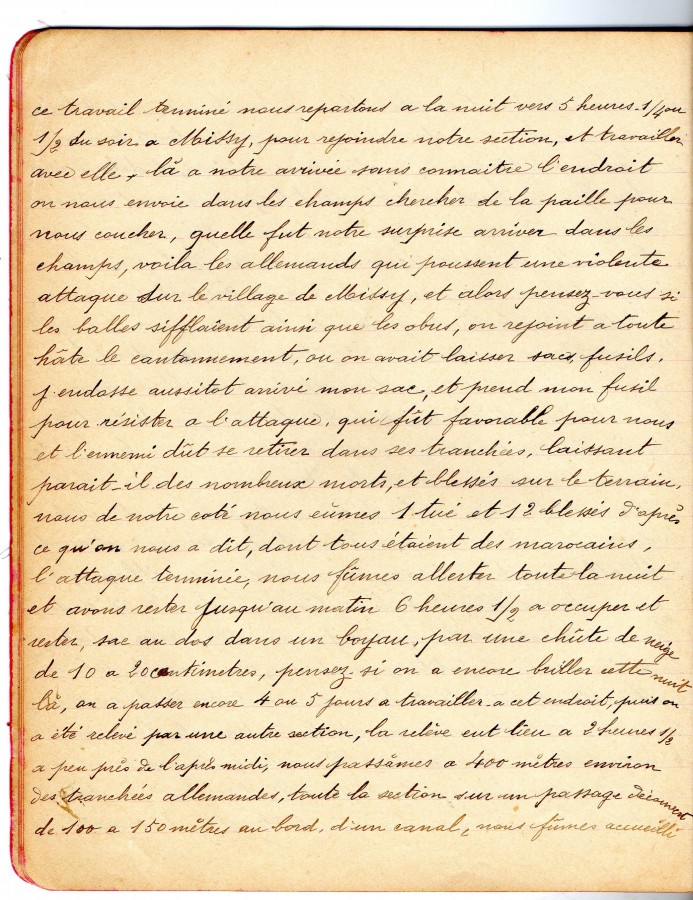 ce travail terminé nous repartons a la nuit vers 5 heures 1/4 ou
1/2 du soir a Missy, pour rejoindre notre section, et travailler
avec elle, là a notre arrivée sans connaitre l'endroit
on nous envoie dans les champs chercher de la paille pour
nous coucher, quelle fut notre surprise arriver dans les
champs, voila les allemands qui poussent une violente
attaque sur le village de Missy, et alors pensez-vous si
les balles sifflaient ainsi que les obus, on rejoint a toute
hâte le cantonnement, ou on avait laisser sacs, fusils.
J'endosse aussitot arrivé mon sac, et prend mon fusil
pour résister a l'attaque, qui fût favorable pour nous
et l'ennemi dût se retirer dans ses tranchées, laissant
parait-il des nombreux morts, et blessés sur le terrain,
nous de notre coté nous eûmes 1 tué et 12 blessés d'après
ce qu'on nous a dit, dont tous étaient des marocains,
l'attaque terminée, nous fûmes allerter toute la nuit
et avons rester jusqu'au matin 6 heures 1/2 a occuper et
rester, sac au dos dans un boyau, par une chûte de neige
de 10 a 20 centimetres, pensez-si on a encore briller cette nuit
là, on a passer encore 4 ou 5 jours a travailler a cet endroit, puis on
a été relevé par une autre section, la relève eut lieu a 2 heures 1/2
a peu près de l'après midi, nous passâmes a 400 mètres environ
des tranchées allemandes, toute la section sur un passage
de 100 a 150 mètres au bord d'un canal, nous fûmes accueilli